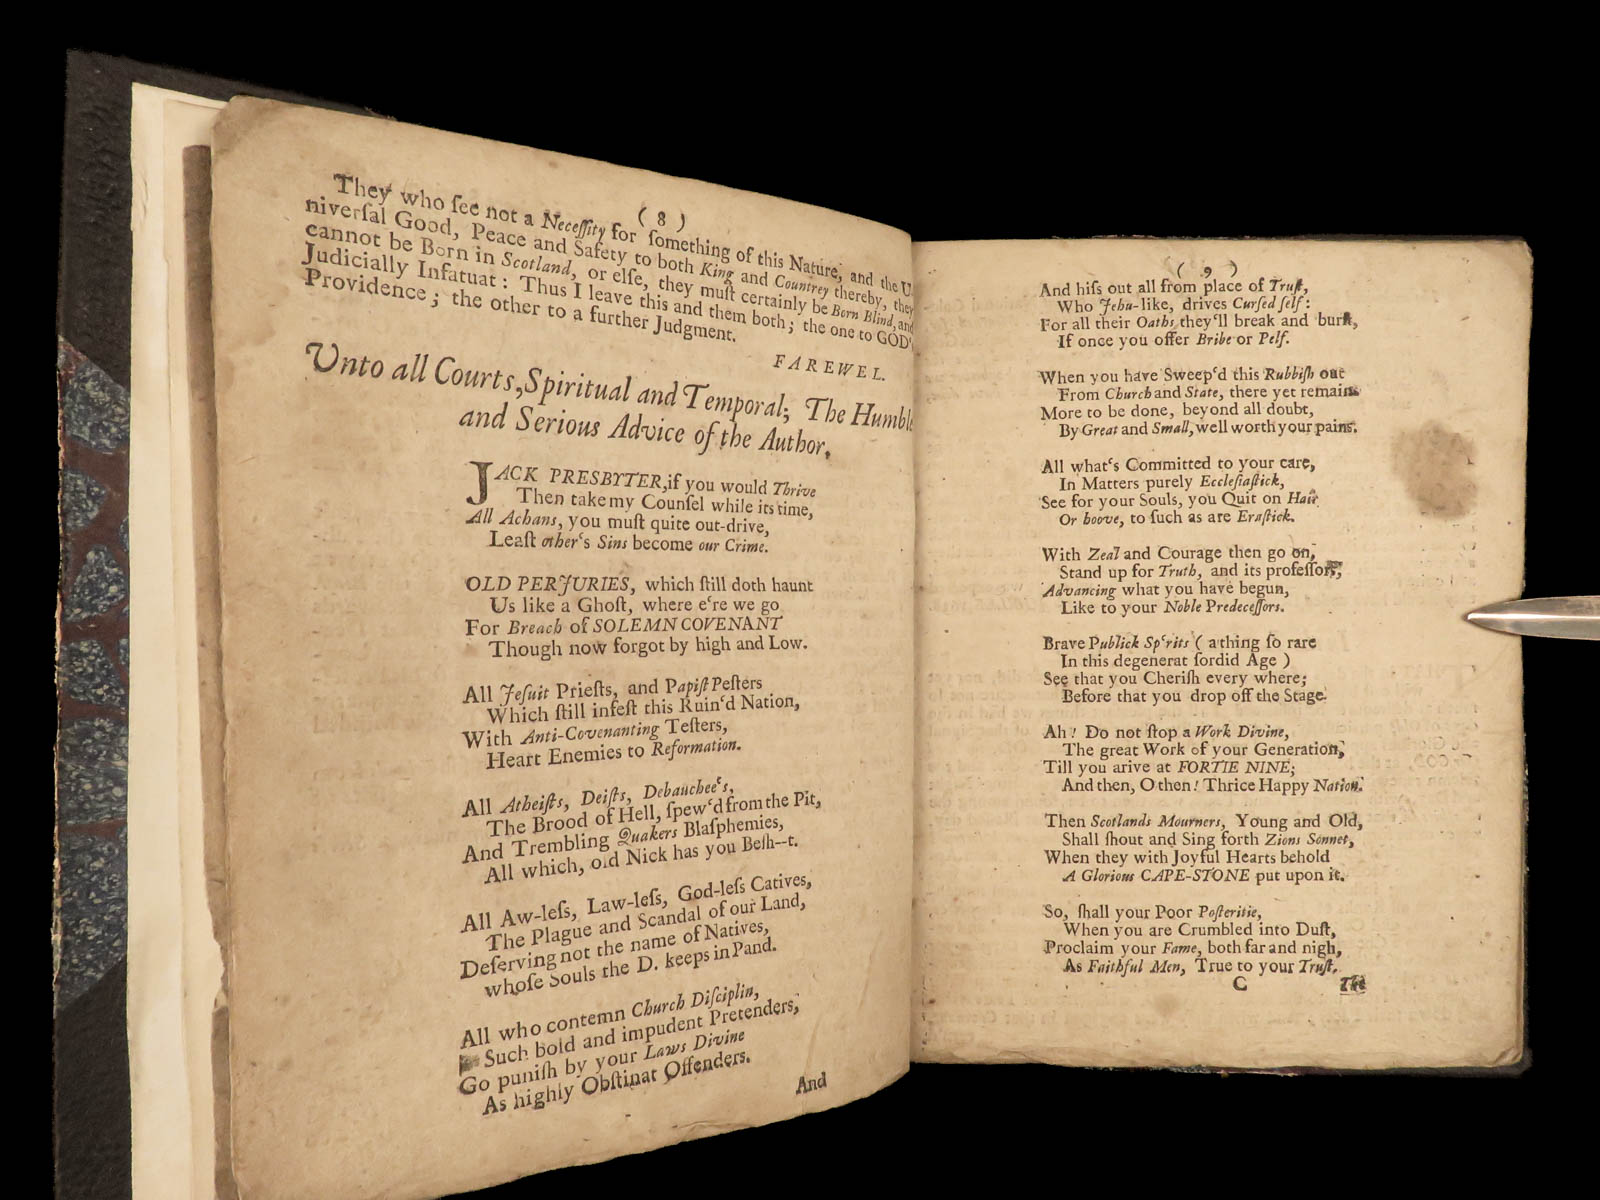 ( 8 )
They who ſee not a Neceſſity for ſomething of this Nature, and the U
niverſal Good, Peace and Safety to both King and Countrey thereby, they
cannot be Born in Scotland, or elſe, they muſt certainly be Born Blind, and
Judicially Infatuat: Thus I leave this and them both; the one to GOD'
Providence; the other to a further Judgment.
FAREWEL.
Unto all Courts, Spiritual and Temporal; The Humble
and Serious Advice of the Author.
JACK PRESBYTER, if you would Thrive
Then take my Counſel while its time,
All Achans, you muſt quite out-drive,
Leaſt other's Sins become our Crime.
OLD PERJURIES, which ſtill doth haunt
Us like a Ghoſt, where e're we go
For Breach of SOLEMN COVENANT
Though now forgot by high and Low.
All Jeſuit Prieſts, and Papiſt Peſters
Which ſtill infeſt this Ruin'd Nation,
With Anti-Covenanting Teſters,
Heart Enemies to Reformation.
All Atheiſts, Deiſts, Debauchee's,
The Brood of Hell, ſpew'd from the Pit,
And Trembling Quakers Blaſphemies,
All which, old Nick has you Beſh--t.
All Aw-leſs, Law-leſs, God-leſs Catives,
The Plague and Scandal of our Land,
Deſerving not the name of Natives,
whoſe Souls the D. keeps in Pand.
All who contemn Church Diſciplin,
Such bold and impudent Pretenders,
Go puniſh by your Laws Divine
As highly Obſtinat Offenders.
And
( 9 )
And hiſs out all from place of Truſt,
Who Jehu-like, drives Curſed ſelf:
For all their Oaths they'll break and burſt,
If once you offer Bribe or Pelf.
When you have Sweep'd this Rubbiſh out
From Church and State, there yet remains
More to be done, beyond all doubt,
By Great and Small, well worth your pains.
All what's Committed to your care,
In Matters purely Eccleſiaſtick,
See for your Souls, you Quit on Hair
Or hoove, to ſuch as are Eraſtick.
With Zeal and Courage then go on,
Stand up for Truth, and its profeſſors,
Advancing what you have begun,
Like to your Noble Predeceſſors.
Brave Publick Sp'rits ( a thing ſo rare
In this degenerat ſordid Age )
See that you Cheriſh every where;
Before that you drop off the Stage.
Ah! Do not ſtop a Work Divine,
The great Work of your Generation,
Till you arive at FORTIE NINE;
And then, O then! Thrice Happy Nation.
Then Scotlands Mourners, Young and Old,
Shall ſhout and Sing forth Zions Sonnet,
When they with Joyful Hearts behold
A Glorious CAPE-STONE put upon it.
So, ſhall your Poor Poſteritie,
When you are Crumbled into Duſt,
Proclaim your Fame, both far and nigh,
As Faithful Men, True to your Truſt.
C